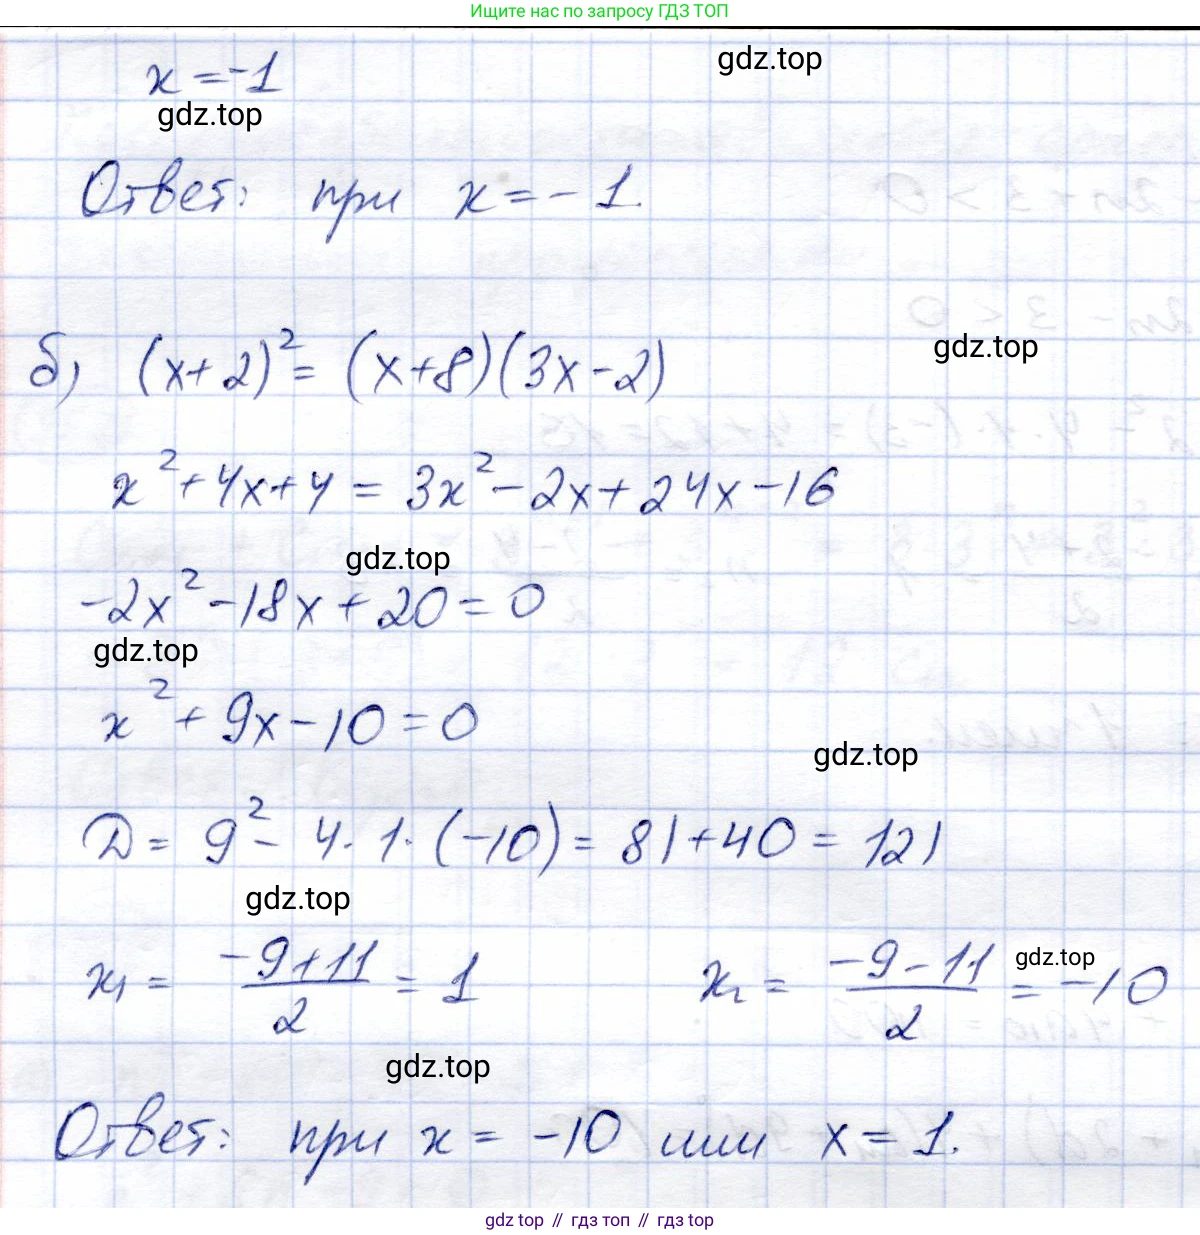 Ищите нас по запросу ГДЗ ТОП
x = -1
gdz.top
gdz.top
Ответ: при x = -1.
б) (x+2)² = (x+8)(3x-2)
gdz.top
x²+4x+4 = 3x²-2x+24x-16
gdz.top
-2x²-18x+20=0
gdz.top
x²+9x-10=0
gdz.top
D = 9²- 4·1·(-10)= 81+40 = 121
gdz.top
x₁ = (-9+11)/2 = 1 x₂ = (-9-11)/2 = -10
gdz.top
gdz.top
Ответ: при x = -10 или x = 1.
gdz top // гдз топ // gdz top